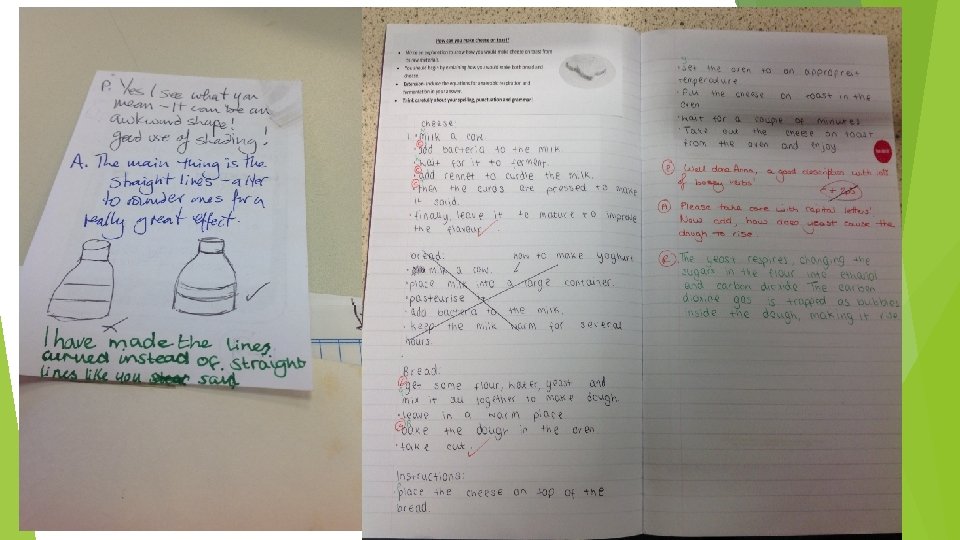 P. Yes I see what you
mean - It can be an
awkward shape!
good use of shading!
A. The main thing is the
straight lines - alter
to rounder ones for a
really great effect.
I have made the lines
curved instead of straight
lines like you said
How can you make cheese on toast?
• Write an explanation to show how you would make cheese on toast from
its raw materials.
• You should begin by explaining how you would make both bread and
cheese.
• Extension: include the equations for anaerobic respiration and
fermentation in your answer.
• Think carefully about your spelling, punctuation and grammar!
cheese:
1. milk a cow.
• add bacteria to the milk.
• wait for it to ferment.
• add rennet to curdle the milk.
• then the curds are pressed to make
it
• finally, leave it to mature to improve
the flavour.
bread: how to make yoghurt
• milk a cow.
• place milk into a large container.
• pasteurise it.
• add bacteria to the milk.
• keep the milk warm for several
hours.
Bread:
• get some flour, water, yeast and
mix it all together to make dough.
• leave in a warm place
• bake the dough in the oven
• take out.
Instructions:
place the cheese on top of the
bread.
• Set the oven to an appropriet
temperature
• Put the cheese on toast in the
oven
• wait for a couple of minutes
• Take out the cheese on toast
from the oven and enjoy.
P Well done Anna, a good description with lots
of bossy verbs!
A Please take care with capital letters!
Now add, how does yeast cause the
dough to rise.
R The yeast respires, changing the
sugars in the flour into ethanol
and carbon dioxide The carbon
dioxide gas is trapped as bubbles
inside the dough, making it rise